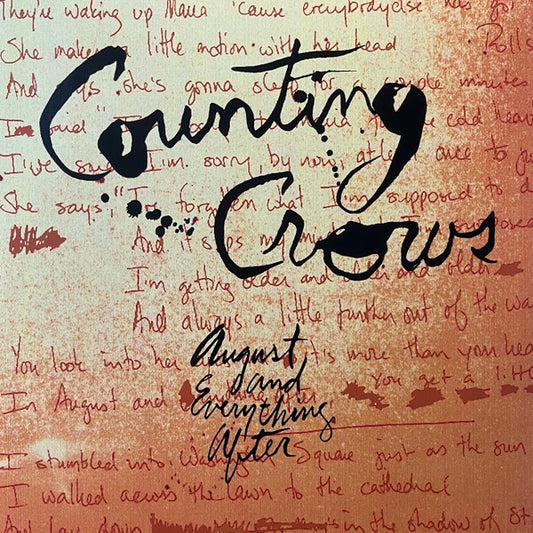 They're waking up Maria 'cause everybody else has got
She makes a little motion with her head Rolls
And says she's gonna sleep for a couple minutes
Counting
I said I to Maria for the cold heav
I've said I'm sorry by now, at least once to ju
She says, "I've forgotten what I'm supposed to d
Crows
And it slips my mind I'm supposed
I'm getting older and older and older
And always a little further out of the wa
You look into her it's more than your hea
August
and
Everything
After
In August and everything after You get a litt
I stumbled into Washington Square just as the sun
I walked across the lawn to the cathedral
And lay down in the shadow of St